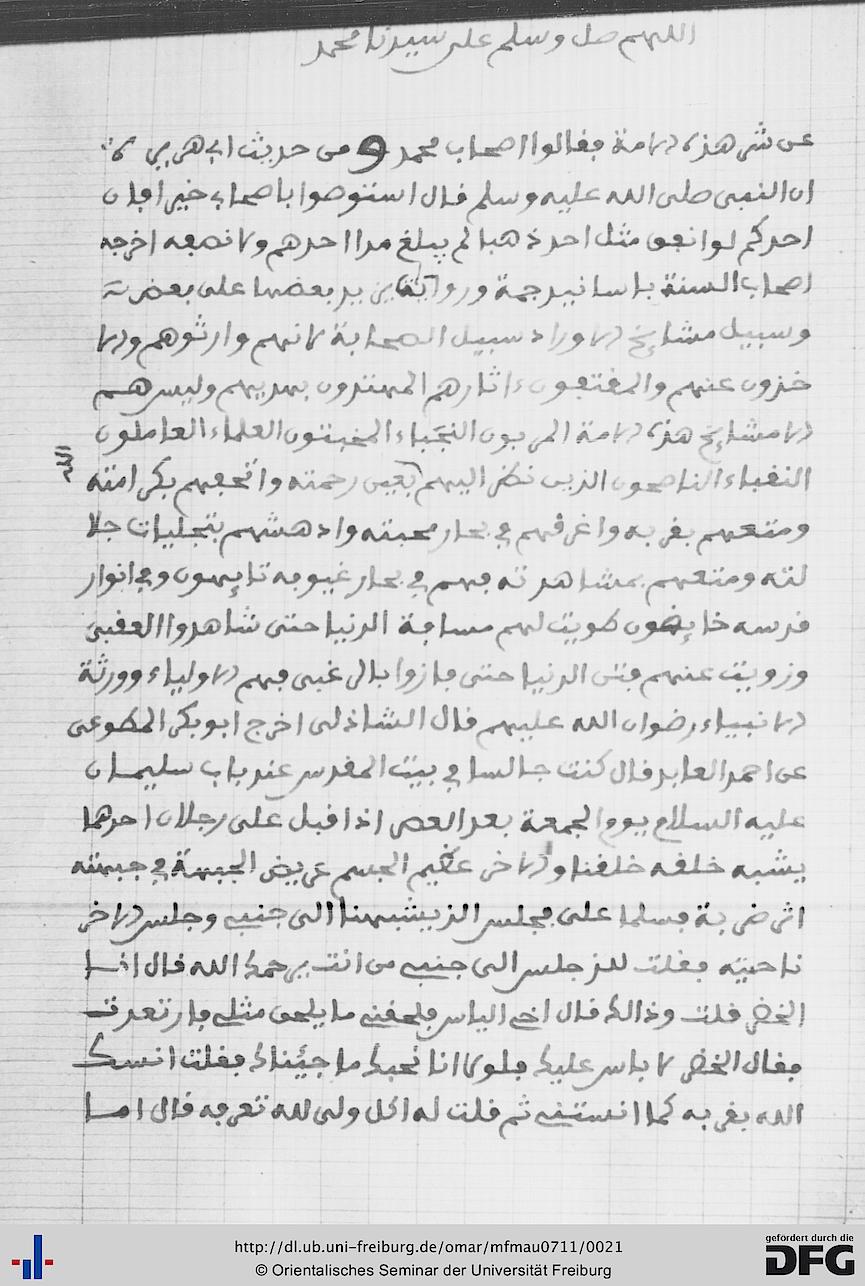 اللهم صل وسلم على سيدنا محمد
عن شر هذه الامة فقالوا اصحاب محمد و من حديث ابي هريرة
ان النبي صلى الله عليه وسلم قال استوصوا باصحابي خيرا فان
احدكم لو انفق مثل احد ذهبا لم يبلغ مد احدهم ولا نصيفه اخرجه
اصحاب السنة باسانيد جمة وروايات يزيد بعضها على بعض
وسبيل مشايخ الاوراد سبيل الصحابة لانهم وارثوهم والا
خذون عنهم والمقتفون ءاثارهم المهتدون بهديهم وليس هم
الا مشايخ هذه الامة المربون النجباء المخبتون العلماء العاملون
النقباء الناصحون الذين نظر اليهم بعين رحمته واتحفهم بكرامته
ومتعهم بقربه واغرقهم في بحار محبته وادهشهم بتجليات جلا
لته ومتعهم بمشاهدته فهم في بحار غيوبه تايهون وفي انوار
قدسه خايضون طويت لهم مسافة الدنيا حتى شاهدوا العقبى
وزويت عنهم فتن الدنيا حتى فازوا بالرغبى فهم الاولياء وورثة
الانبياء رضوان الله عليهم قال الشاذلي اخرج ابو بكر المطوعي
عن احمد العابد قال كنت جالسا في بيت المقدس عند باب سليمان
عليه السلام يوم الجمعة بعد العصر اذ اقبل علي رجلان احدهما
يشبه خلقه خلقنا والاخر عظيم الجسم عريض الجبهة في جبهته
اثر ضربة فسلما علي فجلس الذ يشبهنا الى جنبي وجلس الاخر
ناحية فقلت للذ جلس الى جنبي من انت يرحمك الله قال انا
الخضر قلت وذالك قال اخي الياس فلحقني ما يلحق مثلي فارتعدت
فقال الخضر لا باس عليك فلولا انا نحبك ما جيئناك فقلت انسك
الله بقربه كما انستني ثم قلت له اكل ولي لله تعرفه قال اما
http://dl.ub.uni-freiburg.de/omar/mfmau0711/0021
© Orientalisches Seminar der Universität Freiburg
gefördert durch die
DFG